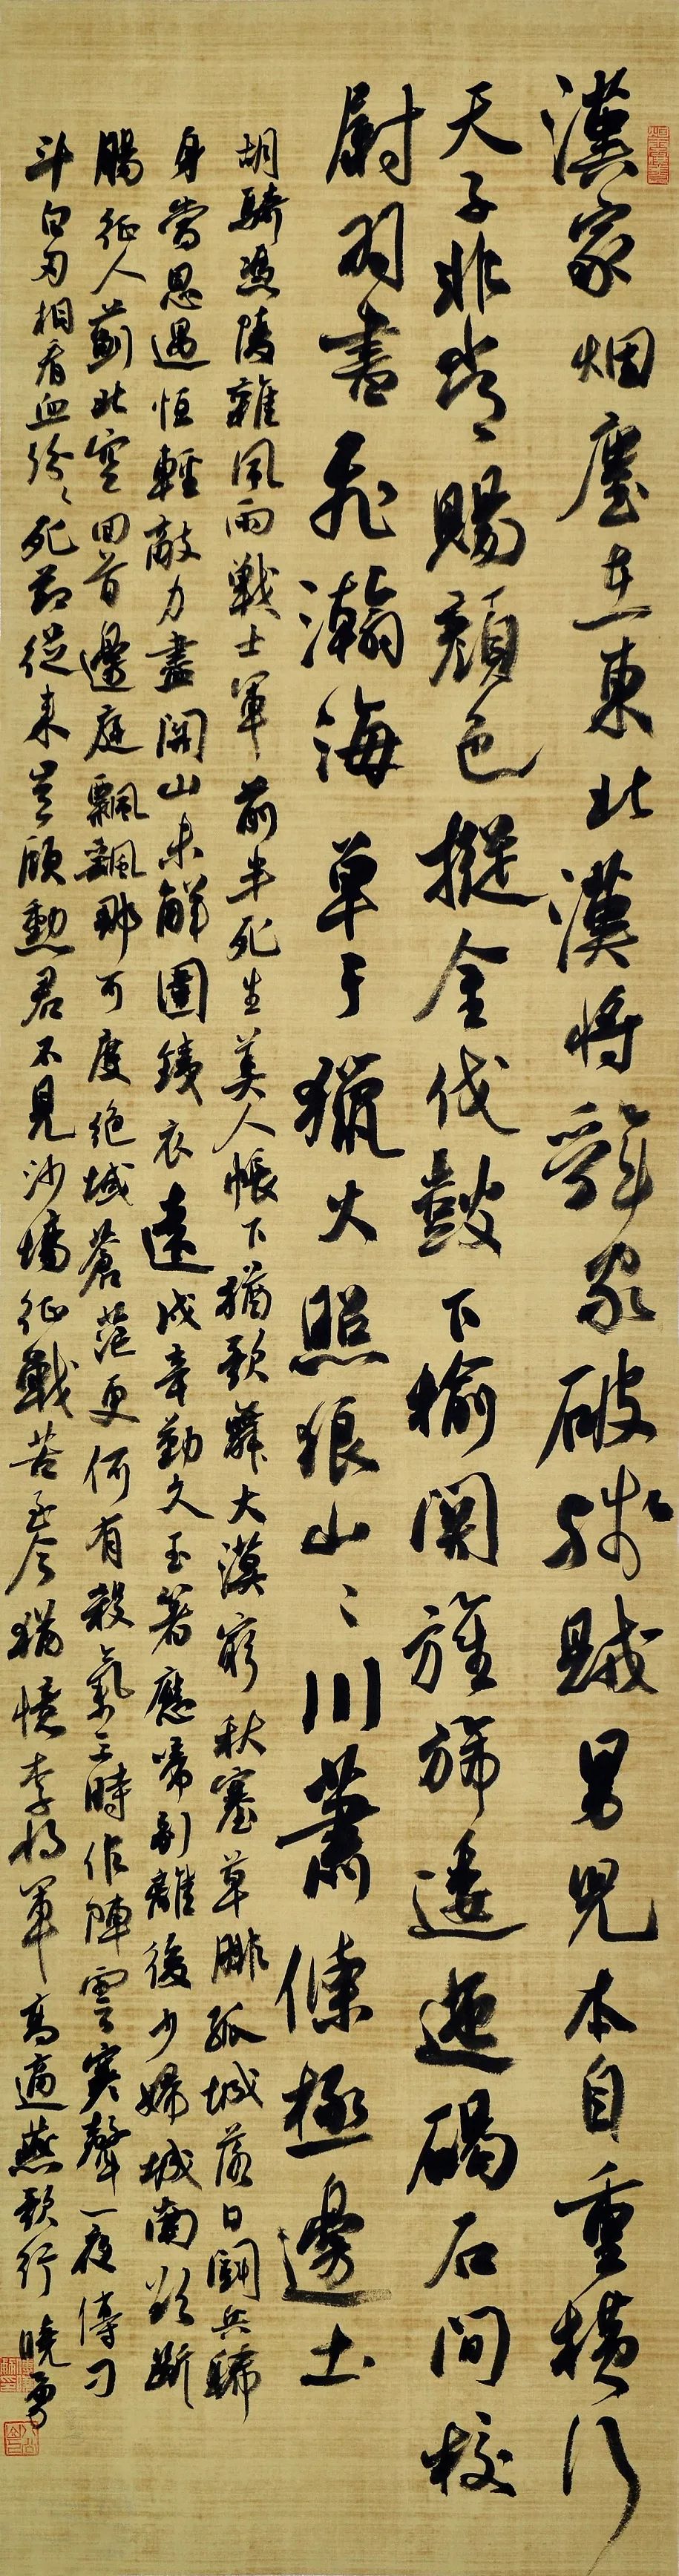 漢家烟塵在東北漢將辭家破殘賊男兒本自重橫行
天子非常賜顏色摐金伐鼓下榆関旌旆逶迤碣石間校
尉羽書飛瀚海單于獵火照狼山〻川蕭條極邊土
胡騎憑陵雜風雨戰士軍前半死生美人帳下猶歌舞大漠窮秋塞草腓孤城落日鬥兵稀
身當恩遇恒輕敵力盡関山未解圍鐵衣遠戍辛勤久玉箸應啼別離後少婦城南欲斷
腸征人薊北空回首邊庭飄颻那可度絕域蒼茫更何有殺氣三時作陣雲寒聲一夜傳刁
斗白刃相看血紛〻死節從来豈顧勳君不見沙場征戰苦至今猶憶李將軍高適燕歌行曉勇